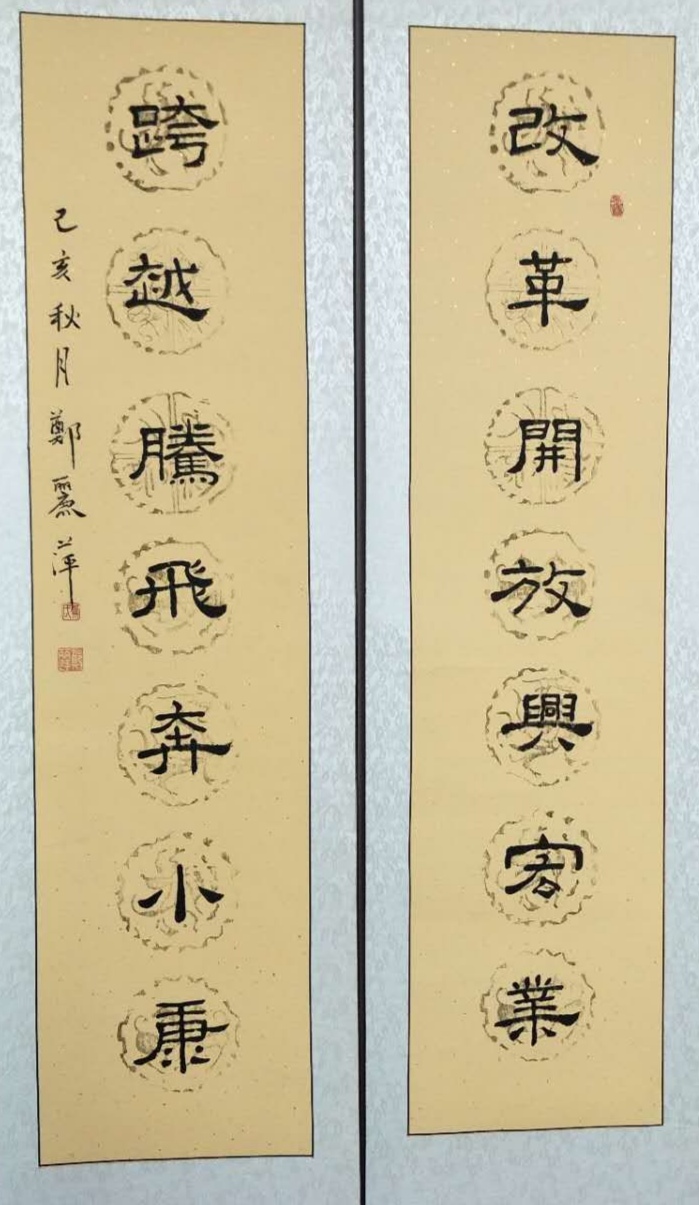 改革開放興宏業
跨越騰飛奔小康
己亥秋月鄭麗萍